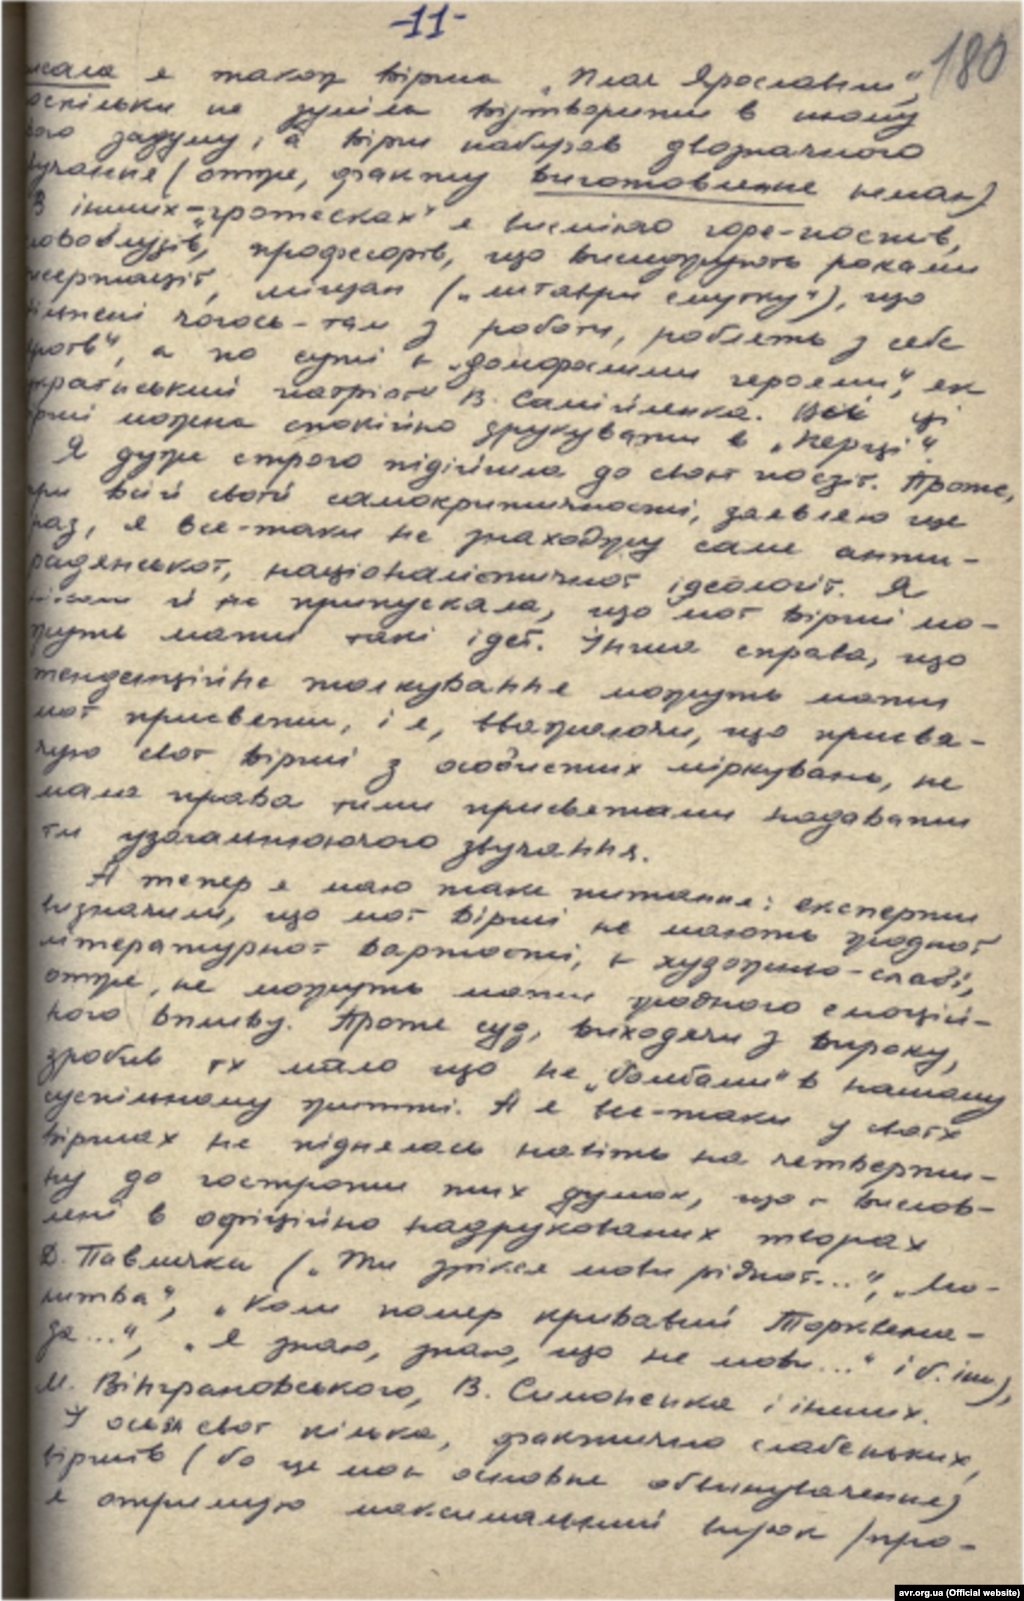 -11-
180
писала я також вірша „Плач Ярославни",
оскільки не зуміла відтворити в ньому
свого задуму, а вірш набирав двозначного
звучання (отже, факту виготовлення немає)
В інших „гротесках" я висміюю горе-поетів,
словоблудів, професорів, що висиджують роками
дисертації, міщан („литаври смутку"), що
вигнані чогось-там з роботи, роблять з себе
героїв", а по суті є „доморослими героями", як
український патріот В. Самійленка. Всі ці
вірші можна спокійно друкувати в „Перці".
Я дуже строго підійшла до своєї поезії. Проте,
при всій своїй самокритичності, заявляю ще
раз, я все-таки не знаходжу саме анти-
радянської, націоналістичної ідеології. Я
ніколи й не припускала, що мої вірші мо-
жуть мати такі ідеї. Інша справа, що
тенденційне тлумачення можуть мати
мої присвяти, і я, вважаючи, що присвя-
чую свої вірші з особистих міркувань, не
мала права тими присвятами надавати
їм узагальнюючого звучання.
А тепер я маю таке питання: експерти
визначили, що мої вірші не мають жодної
літературної вартості, є художньо-слабі,
отже, не можуть мати жодного емоцій-
ного впливу. Проте суд, виходячи з вироку,
зробив їх мало що не „бомбами" в нашому
суспільному житті. А я все-таки у своїх
віршах не піднялась навіть на четверти-
ну до гостроти тих думок, що є вислов-
лені в офіційно надрукованих творах
Д. Павличка („Ти зрікся мови рідної...", „Мо-
литва", „Коли помер кривавий Торквема-
да...", „Я знаю, знаю, що не мови..." і б. інш),
М. Вінграновського, В. Симоненка і інших.
І ось за свої кілька, фактично слабеньких,
віршів (бо це моє основне обвинувачення)
я отримую максимальний вирок (про-
avr.org.ua (Official website)